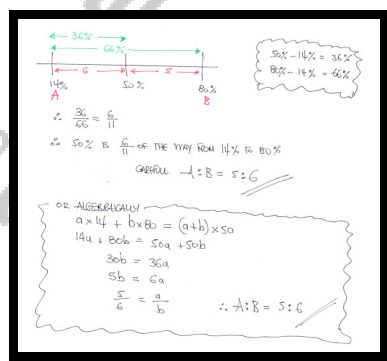 36%
66%
50% - 14% = 36%
80% - 14% = 66%
6 5
14% 50% 80%
A B
∴ 36/66 = 6/11
∴ 50% IS 6/11 OF THE WAY FROM 14% TO 80%
CAREFUL A:B = 5:6
OR ALGEBRAICALLY
a×14 + b×80 = (a+b)×50
14a + 80b = 50a + 50b
30b = 36a
5b = 6a
5/6 = a/b ∴ A:B = 5:6